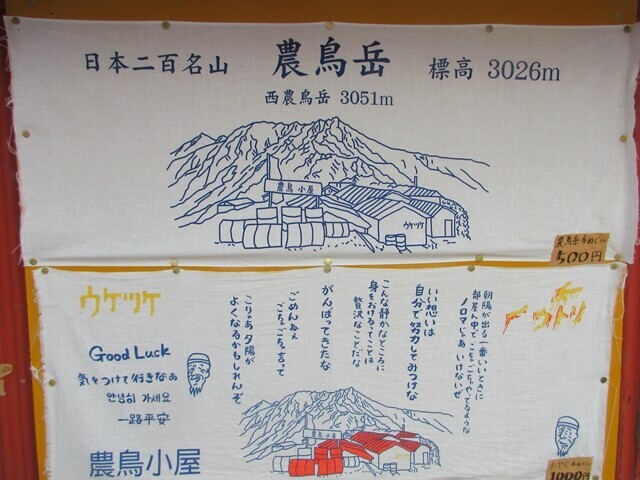 日本二百名山 農鳥岳 標高 3026m
西農鳥岳 3051m
農鳥小屋
ウケツケ
農鳥岳手ぬぐい
500円
ウケツケ
Good Luck
気をつけて行きなぁ
안녕히 가세요
一路平安
農鳥小屋
朝陽が出る一番いいときに
部屋ん中でこちょごちょやってるような
ノロマじゃあ いけないぜ
いい想いは
自分で努力してみつけな
こんな静かなところに
身をおけるってことは
贅沢なことだな
がんばってきたな
ごめんねぇ
ごちゃごちゃ言って
こりゃあ夕陽が
よくなるかもしれんぞ
農鳥小屋
1000円